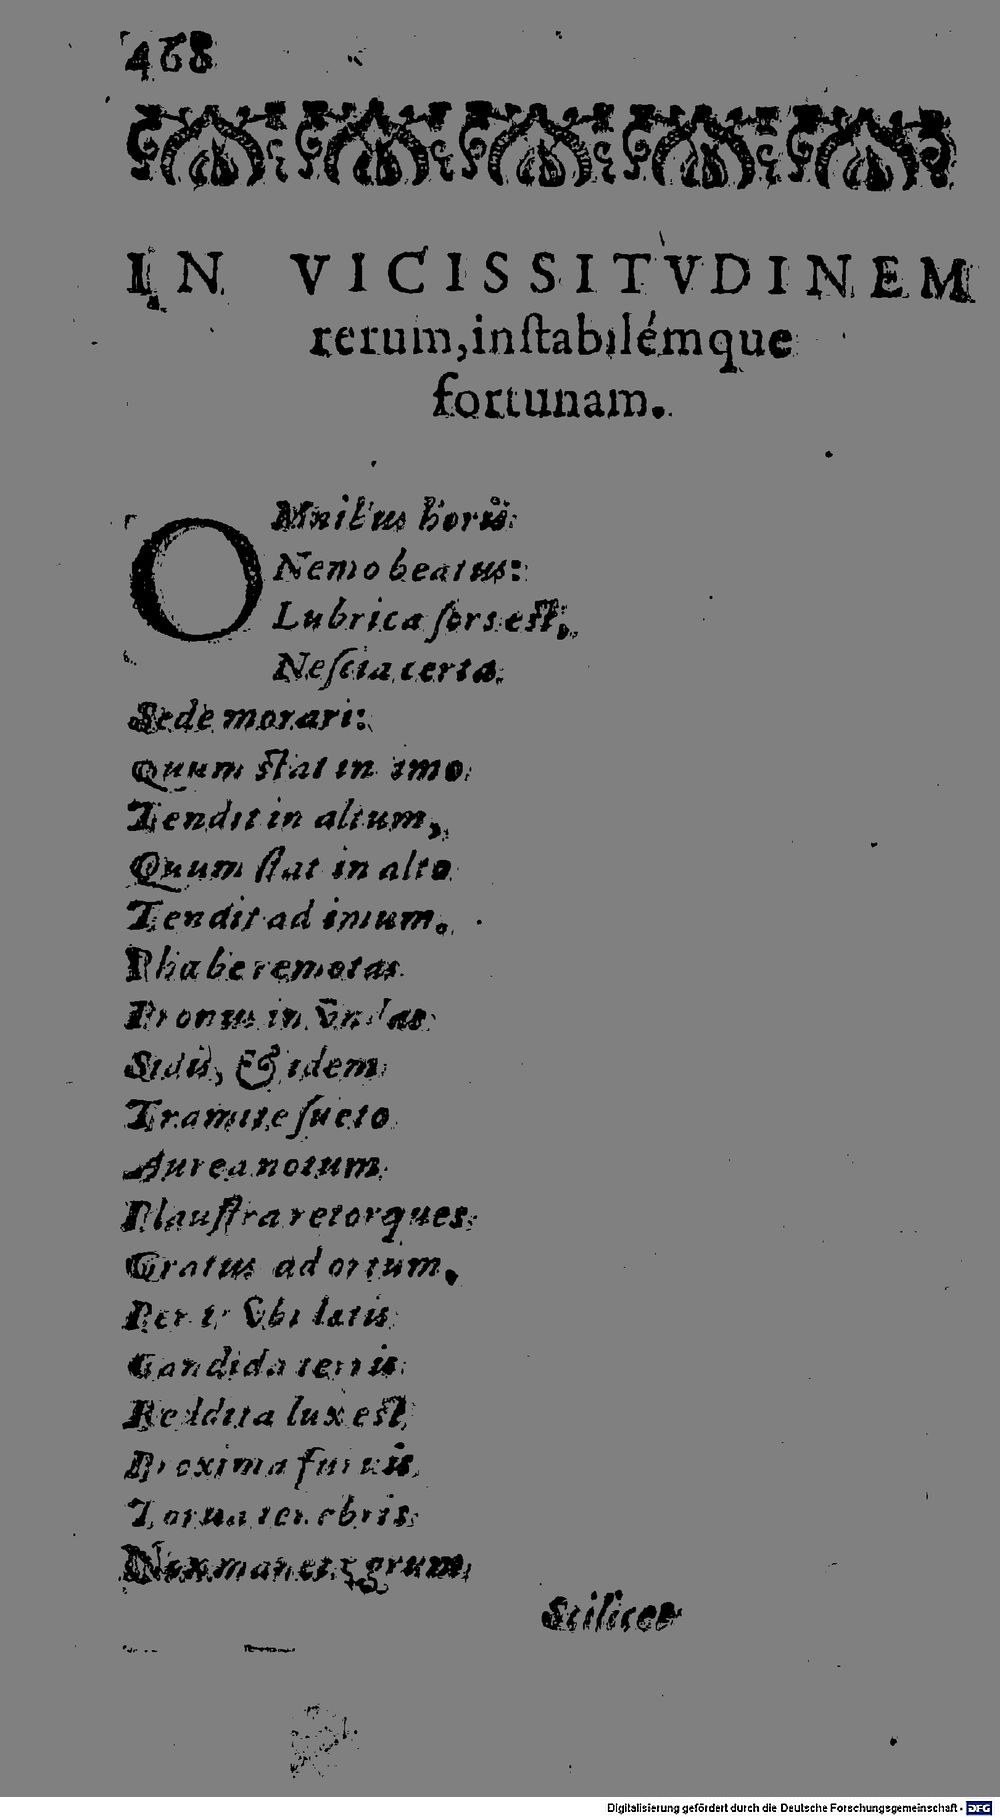 468
IN VICISSITVDINEM
rerum, instabilémque
fortunam.
OMnibus horis
Nemo beatus:
Lubrica sors est,
Nescia certa
Sede morari:
Quum stat in imo
Tendit in altum,
Quum stat in alto
Tendit ad imum.
Phœbe remotas
Pronus in vndas
Sidis, & idem
Tramite sueto
Aurea notum
Plaustra retorques
Gratus ad ortum.
Per te vbi latis
Candida terris
Reddita lux est,
Proxima furuis
Torua tenebris
Nox manet ęgrum.
Scilicet
Digitalisierung gefördert durch die Deutsche Forschungsgemeinschaft - DFG